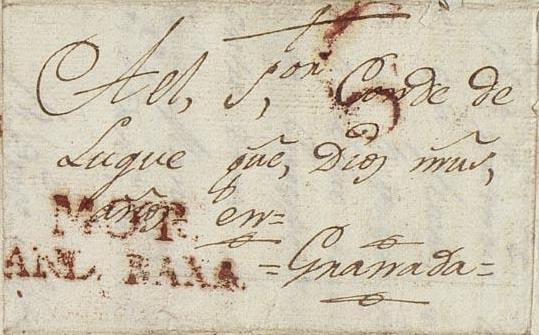 Al, S,or Conde de
Luque gũe, Dios m̃us,
años en=
=Granada=
MOR.
AND. BAXA